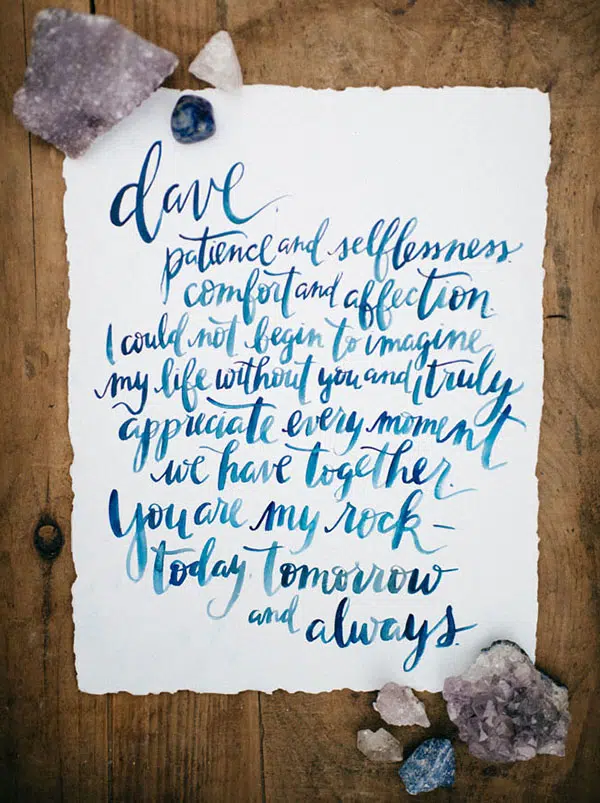 dave
patience and selflessness.
comfort and affection.
I could not begin to imagine
my life without you and I truly
appreciate every moment
we have together.
You are my rock –
today, tomorrow
and always.